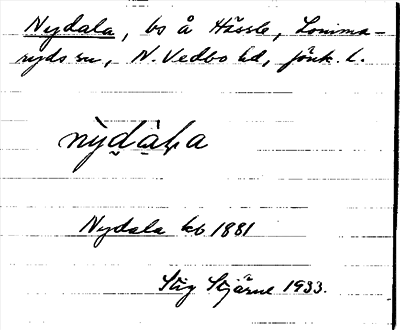 Nydala, bs å Hässle, Lomma-
ryds sn, N. Vedbo hd, Jönk. l.
nỳdàla
Nydala kb 1881
Stig Stjärne 1933.